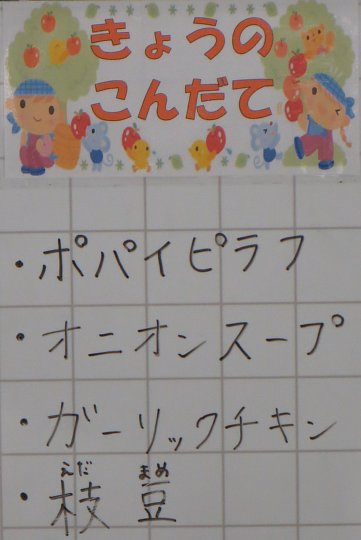 きょうの
こんだて
・ポパイピラフ
・オニオンスープ
・ガーリックチキン
えだ まめ
・枝豆